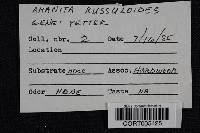 AMANITA RUSSULOIDES
GENE YETTER
Coll. nbr. 2 Date 7/16/85
Location
Substrate Assoc. HARDWOOD
Odor NONE Taste NA
CORT005425